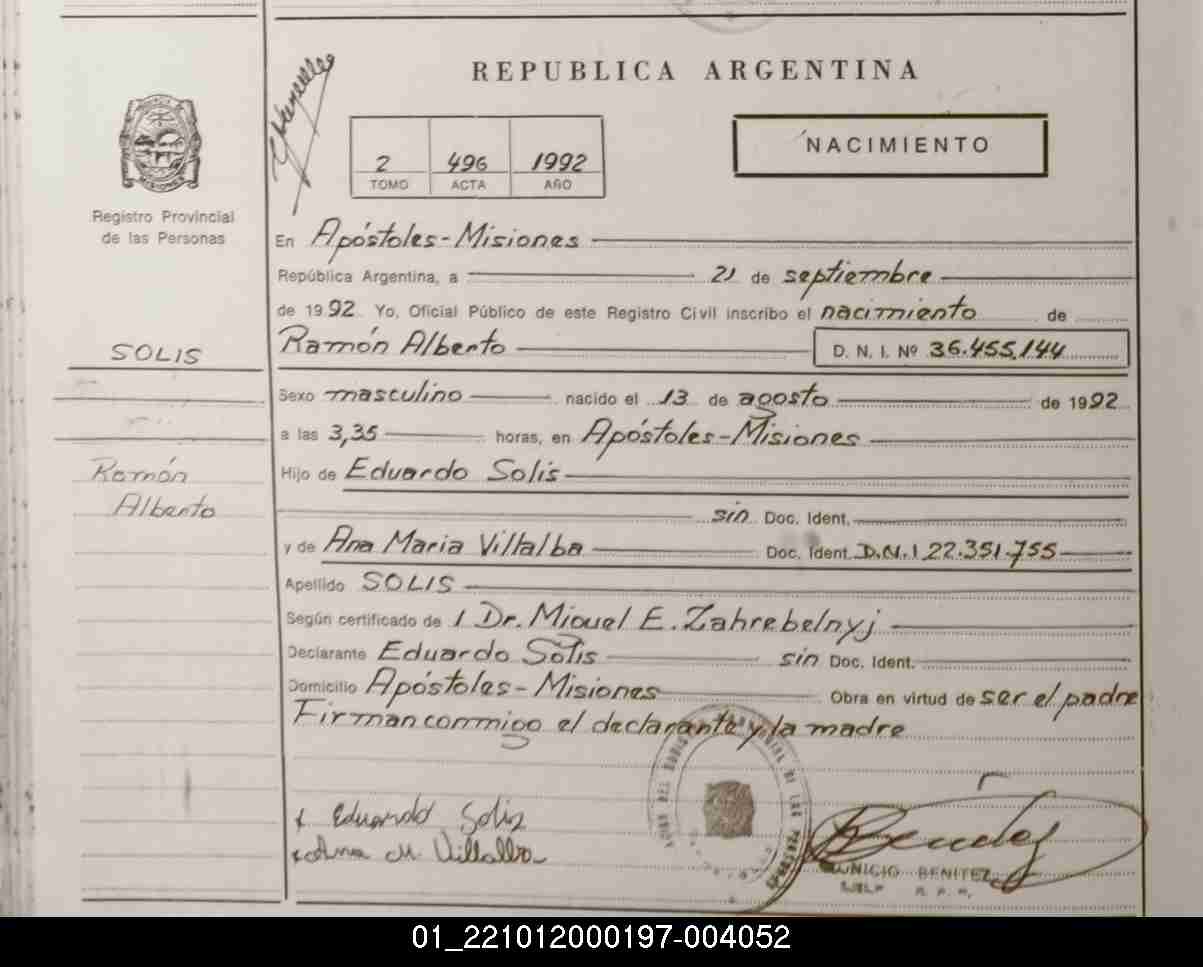 REPUBLICA ARGENTINA
NACIMIENTO
2 496 1992
TOMO ACTA AÑO
MISIONES
Registro Provincial
de las Personas
En Apóstoles-Misiones
República Argentina, a 21 de septiembre
de 1992 Yo, Oficial Público de este Registro Civil inscribo el nacimiento de
SOLIS
Ramón Alberto D. N. I. Nº 36.455.144
Sexo masculino nacido el 13 de agosto de 1992
a las 3,35 horas, en Apóstoles-Misiones
Ramón
Alberto
Hijo de Eduardo Solis
sin Doc. Ident.
y de Ana Maria Villalba Doc. Ident. D.N.I 22.351.755
Apellido SOLIS
Según certificado de 1 Dr. Miguel E. Zahrebelnyj
Declarante Eduardo Solis sin Doc. Ident.
Domicilio Apóstoles-Misiones Obra en virtud de ser el padre
Firman conmigo el declarante y la madre
x Eduardo Solis
x Ana M. Villalba
BENITEZ
01_221012000197-004052